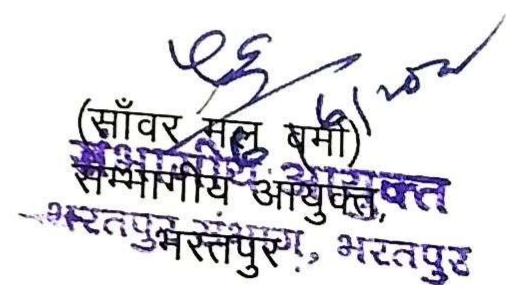 (साँवर मल वर्मा)
सम्भागीय आयुक्त,
भरतपुर
संभागीय आयुक्त
भरतपुर संभाग, भरतपुर